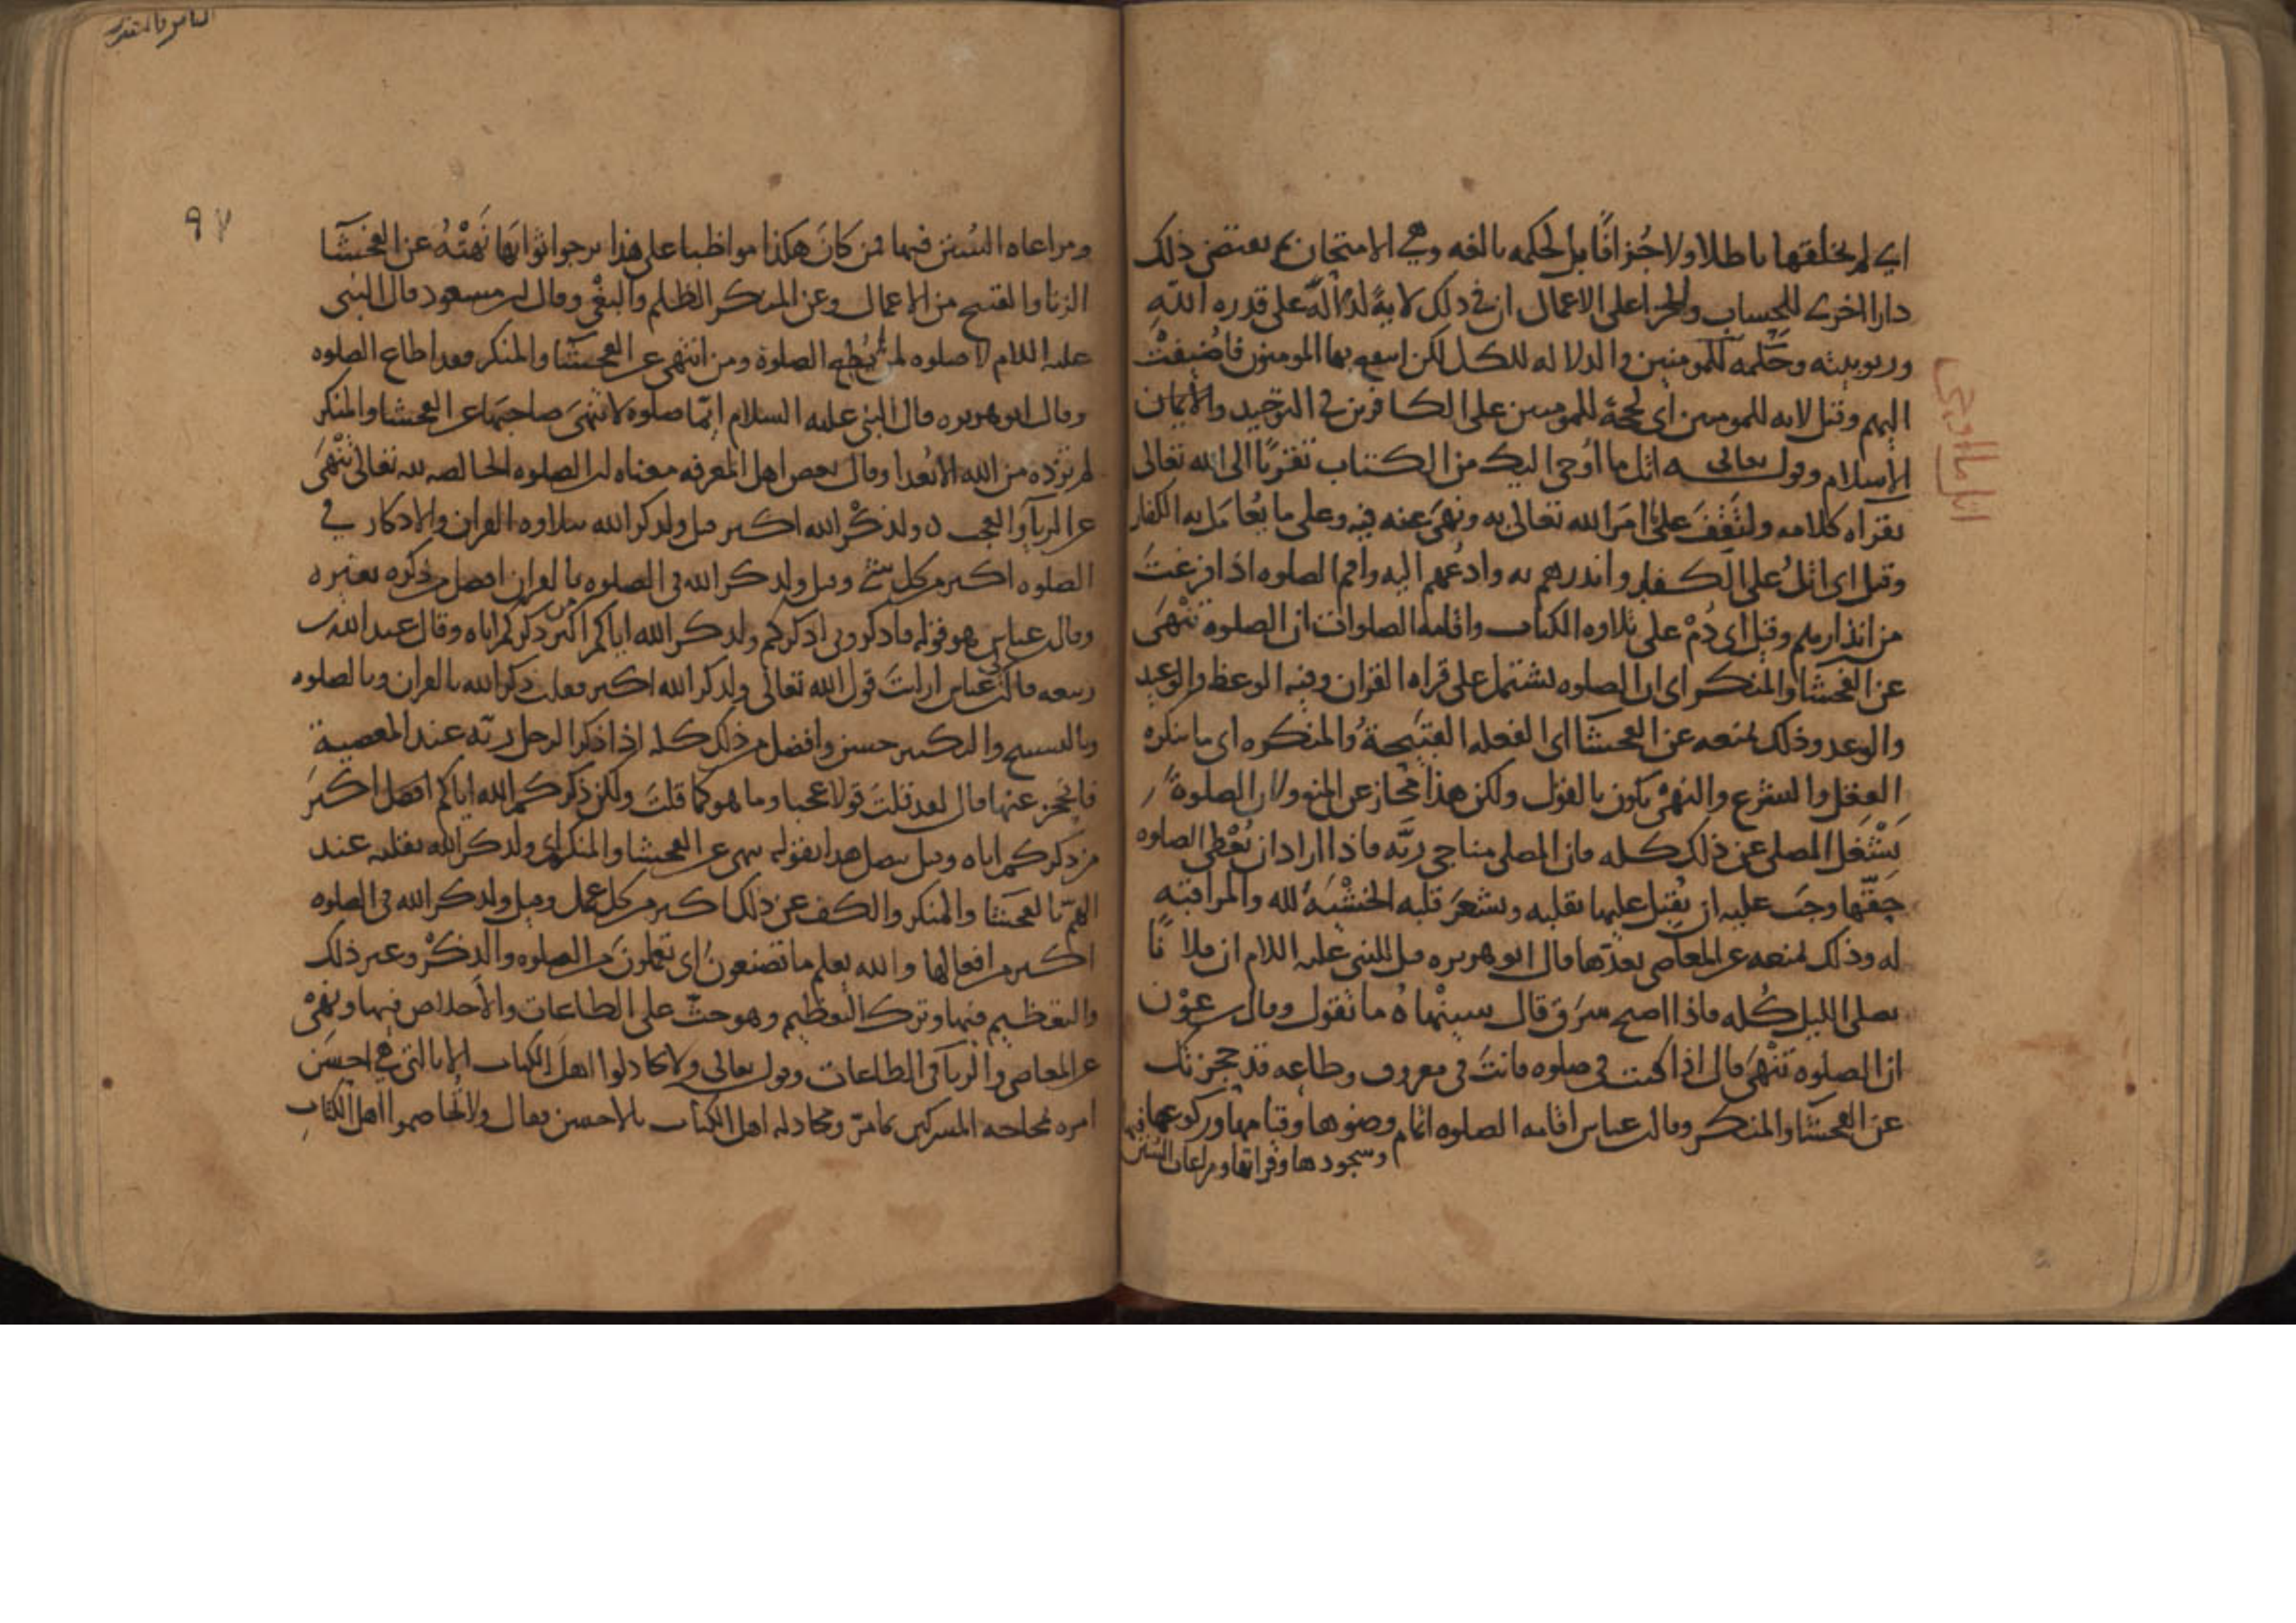 اي لم يخلقها باطلا ولا جزافا بل لحكمه بالغه وهي الامتحان ثم يقتضى ذلك
دارا اخرى للحساب والجزا على الاعمال ان في ذلك لاية لدلالة على قدره الله
وربوبيته وحكمه للمومنين والدلاله للكل لكن انتفع بها المومنون فاضيفت
اليهم وقيل لايه للمومنين اى لحجة للمومنين على الكافرين في التوحيد والايمان
الاسلام وقوله تعالى اتل ما أوحى اليك من الكتاب تقربا الى الله تعالى
بقراه كلامه ولتقف على ما امر الله تعالى به ونهى عنه فيه وعلى ما يعامل به الكفار
وقيل اى اتل على الكفار وانذرهم به وادعهم اليه واقم الصلوه اذا فرغت
من انذارهم وقيل اى دم على تلاوه الكتاب واقامه الصلوات ان الصلوة تنهى
عن الفحشا والمنكر اى ان الصلوه تشتمل على قراه القران وفيه الوعظ والوعيد
والوعد وذلك يمنعه عن الفحشا اى الفعله القبيحة والمنكر اى ما ينكره
العقل والشرع والنهى يكون بالقول ولكن هذا مجاز عن المنع ولان الصلوة
يشغل المصلى عن ذلك كله فان المصلى مناجى ربه فاذا اراد ان يعطى الصلوه
حقها وجب عليه ان يقبل عليها بقلبه ويشعر قلبه الخشية لله والمراقبه
له وذلك يمنعه عن المعاصى بعدها قال ابو هريره قيل للنبى عليه السلام ان فلانا
يصلى الليل كله فاذا اصبح سرق قال سينهاه ما تقول وقال ابن عون
ان الصلوه تنهى قال اذا كنت فى صلوه فانت فى معروف وطاعه قد حجزتك
عن الفحشا والمنكر وقال ابن عباس اقامه الصلوه اتمام وضوها وقيامها وركوعها فيها
وسجودها وقراتها ومراعات السنن
اتل ما اوحى
٩٧
ومراعاه السنن فيها فمن كان هكذا مواظبا على هذا يرجو ثوابها نهته عن الفحشا
الزنا والقبيح من الاعمال وعن المنكر الظلم والبغى وقال ابن مسعود قال النبى
عليه السلام لا صلوه لمن لم يطع الصلوة ومن انتهى عن الفحشا والمنكر فقد اطاع الصلوه
وقال ابو هريره قال النبى عليه السلام ايما صلوه لا تنهى صاحبها عن الفحشا والمنكر
لم تزده من الله الا بعدا وقال بعض اهل المعرفه معناه ان الصلوه الخالصه لله تعالى تنهى
عن الريآ والعجب ولذكر الله اكبر قيل ولذكر الله بتلاوه القران والاذكار في
الصلوه اكبر من كل شئ وقيل ولذكر الله فى الصلوه بالقران افضل من ذكره بغيره
وقال ابن عباس هو قوله فاذكروني اذكركم ولذكر الله اياكم اكبر من ذكركم اياه وقال عبد الله بن
ربيعه قال ابن عباس ارايت قول الله تعالى ولذكر الله اكبر فقلت ذكر الله بالقران وبالصلوه
وبالتسبيح والتكبير حسن وافضل من ذلك كله اذا ذكر الرجل ربه عند المعصية
فانحجز عنها قال لقد قلت قولا عجبا وما هو كما قلت ولكن ذكركم الله اياكم افضل اكبر
من ذكركم اياه وقيل يتصل هذا بقوله تنهى عن الفحشا والمنكر اى ولذكر الله بقلبه عند
الهم بالفحشا والمنكر والكف عن ذلك اكبر من كل عمل وقيل ولذكر الله فى الصلوه
اكبر من افعالها والله يعلم ما تصنعون اى تعملون من الصلوه والذكر وغير ذلك
والتعظيم فيها وترك التعظيم وهو حث على الطاعات والاخلاص فيها ونهى
عن المعاصى والريآ فى الطاعات وقوله تعالى ولا تجادلوا اهل الكتاب الا بالتى هي احسن
امره بمحاجه المشركين كما مر ومجادله اهل الكتاب بالاحسن فقال ولا تخاصموا اهل الكتاب